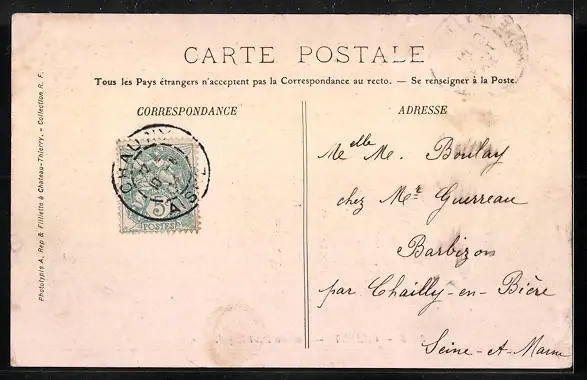 CARTE POSTALE
Tous les Pays étrangers n'acceptent pas la Correspondance au recto. — Se renseigner à la Poste.
CORRESPONDANCE
ADRESSE
CHAUNY
AISNE
5
POSTES
Melle M. Boulay
chez Mr Guerreau
Barbizon
par Chailly-en-Bière
Seine-et-Marne
Phototypie A. Rep & Filliette à Chateau-Thierry. - Collection R. F.